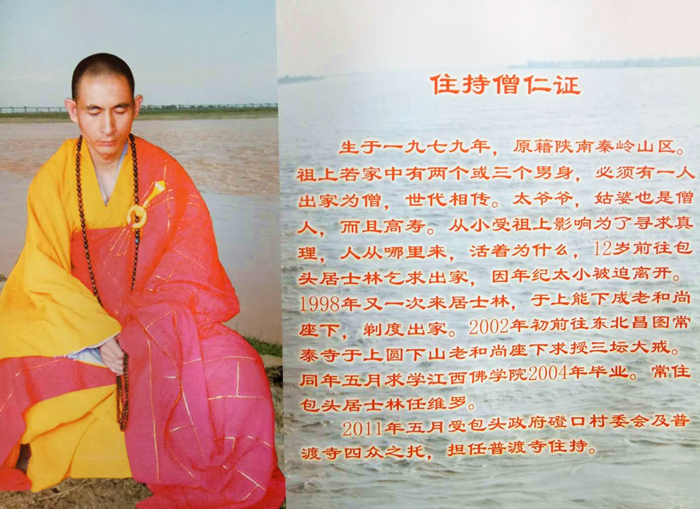 住持僧仁证
生于一九七九年，原藉陕南秦岭山区。
祖上若家中有两个或三个男身，必须有一人
出家为僧，世代相传。太爷爷，姑婆也是僧
人，而且高寿。从小受祖上影响为了寻求真
理，人从哪里来，活着为什么，12岁前往包
头居士林乞求出家，因年纪太小被迫离开。
1998年又一次来居士林，于上能下成老和尚
座下，剃度出家。2002年初前往东北昌图常
泰寺于上圆下山老和尚座下求授三坛大戒。
同年五月求学江西佛学院2004年毕业。常住
包头居士林任维罗。
2011年五月受包头政府磴口村委会及普
渡寺四众之托，担任普渡寺住持。